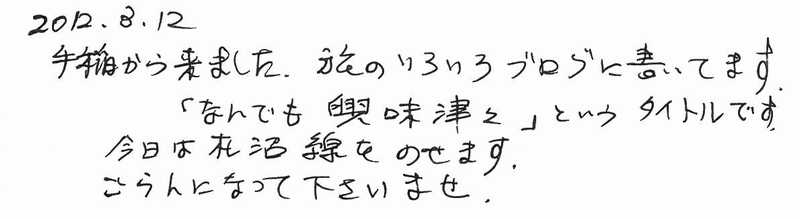 2012.8.12
手稲から来ました. 旅のいろいろブログに書いてます.
「なんでも 興味津々」という タイトルです.
今日は札沼線をのせます.
ごらんになって下さいませ.